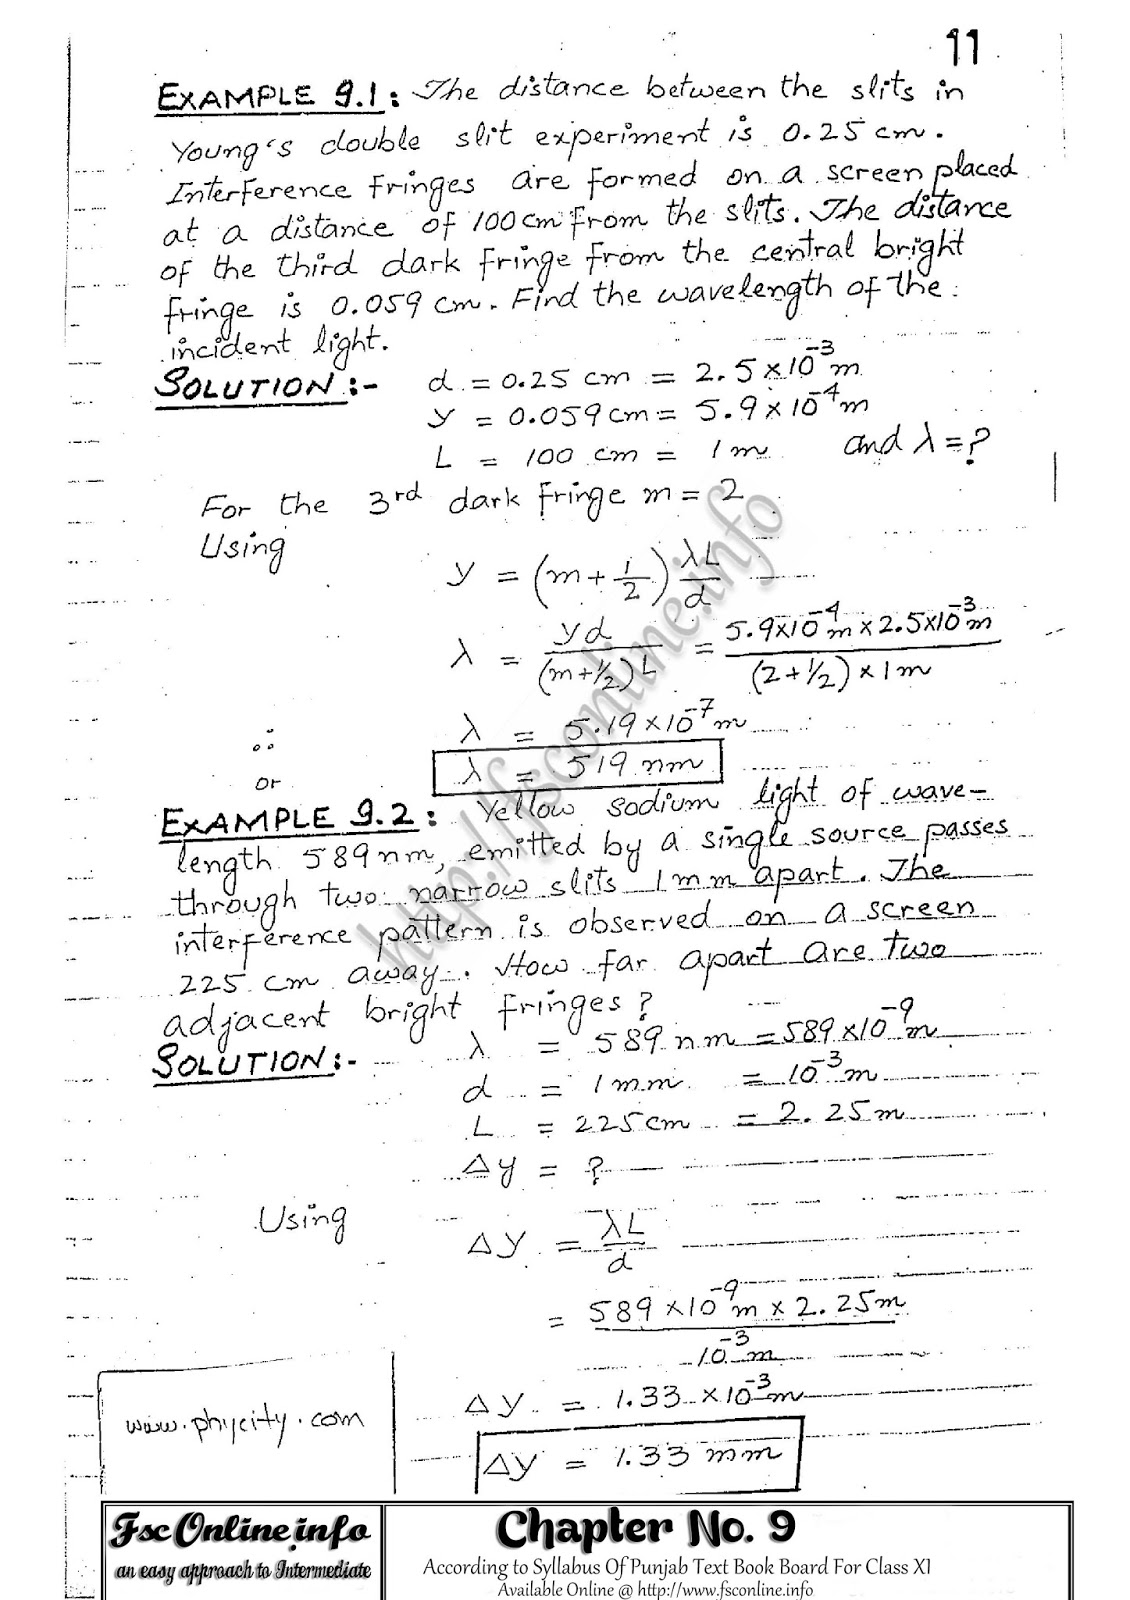 11
EXAMPLE 9.1: The distance between the slits in
Young's double slit experiment is 0.25 cm.
Interference Fringes are formed on a screen placed
at a distance of 100 cm from the slits. The distance
of the third dark fringe from the central bright
fringe is 0.059 cm. Find the wavelength of the
incident light.
SOLUTION :- d = 0.25 cm = 2.5 × 10⁻³ m
y = 0.059 cm = 5.9 × 10⁻⁴ m
L = 100 cm = 1 m and λ = ?
For the 3rd dark fringe m = 2
Using
y = (m + 1/2) λL/d
λ = yd/(m+1/2)L = 5.9×10⁻⁴ m × 2.5×10⁻³ m/(2+1/2) × 1 m
∴ λ = 5.19 × 10⁻⁷ m
or λ = 519 nm
EXAMPLE 9.2: Yellow sodium light of wave-
length 589 nm, emitted by a single source passes
through two narrow slits 1mm apart. The
interference pattern is observed on a screen
225 cm away. How far apart are two
adjacent bright fringes?
SOLUTION:- λ = 589 nm = 589 × 10⁻⁹ m
d = 1 mm = 10⁻³ m
L = 225 cm = 2.25 m
Δy = ?
Using
Δy = λL/d
= 589 × 10⁻⁹ m × 2.25 m/10⁻³ m
Δy = 1.33 × 10⁻³ m
Δy = 1.33 mm
www.phycity.com
http://fsconline.info
Fsc Online.info
an easy approach to Intermediate
Chapter No. 9
According to Syllabus Of Punjab Text Book Board For Class XI
Available Online @ http://www.fsconline.info